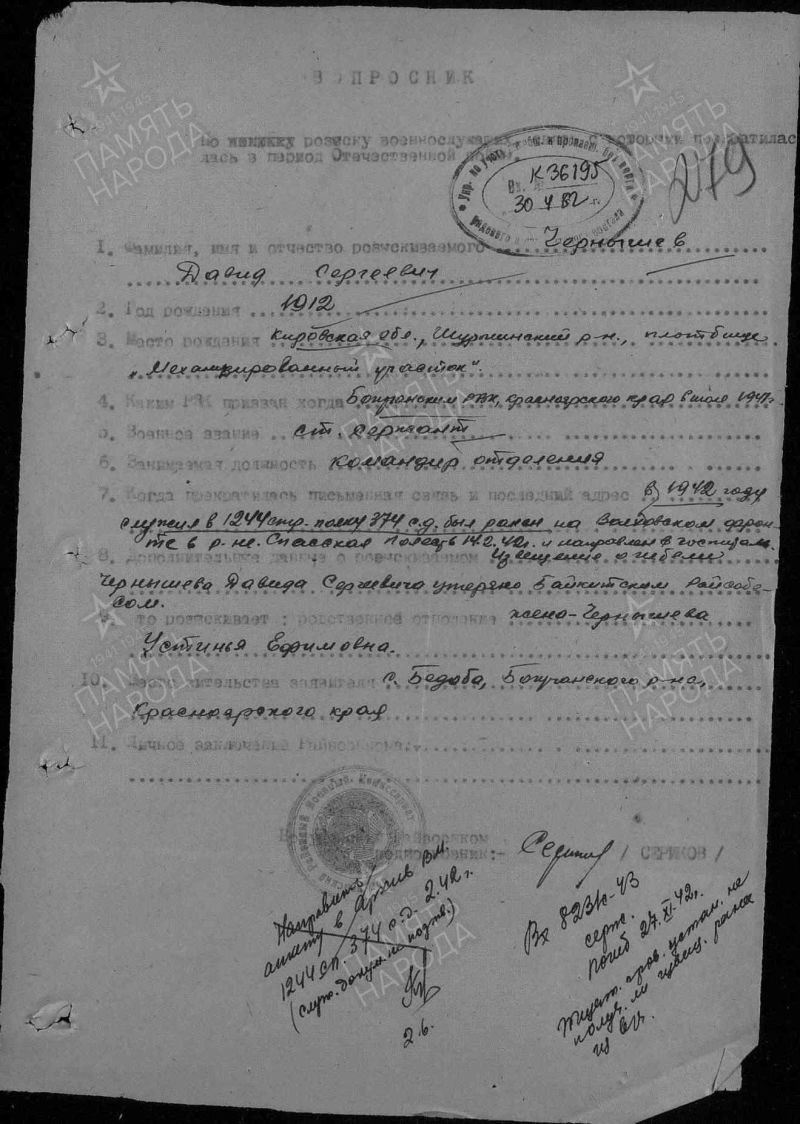 ВОПРОСНИК
розыску
лась в период Отечественной
К 36195
30 V 52 г.
279
1. Фамилия, имя и отчество розыскиваемого Чернышев
Давид Сергеевич
2. Год рождения 1912
3. Место рождения Кировская обл., Шурминский р-н., плотбище
„Механизированный участок".
4. Каким РВК призван когда Богучанским РВК, Красноярского края в июле 1941г.
5. Военное звание ст. сержант
6. Занимаемая должность командир отделения
7. Когда прекратилась письменная связь и последний адрес в 1942 году
служил в 1244 стр. полку 374 с.д. был ранен на Волховском фрон-
те в р-не. Спасская Полесть 14.2.42г. и направлен в госпиталь.
8. Дополнительные данные о розыскиваемом Извещение о гибели
Чернышева Давида Сергеевича утеряно Байкитским Райсобе-
сом.
9. Кто розыскивает : родственное отношение жена-Чернышева
Устинья Ефимовна.
10. Место жительства заявителя с. Бедоба, Богучанского р-на,
Красноярского края
11. Личное заключение Райвоенкома:
Райвоенком
/ СЕРИКОВ /
Направить
анкету в Архив ВМ.
1244 сп. 374 с.д. 2.42г.
(служ. докум. не подтв.)
2.6.
Вх 8231с-43
серж.
погиб 27.XI.42г.